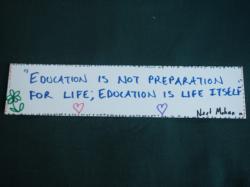 "EDUCATION IS NOT PREPARATION
FOR LIFE; EDUCATION IS LIFE ITSELF
Neet Mohan